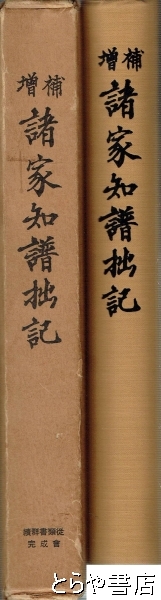 增補
諸家知譜拙記
續群書類從
完成會
增補
諸家知譜拙記
とらや書店